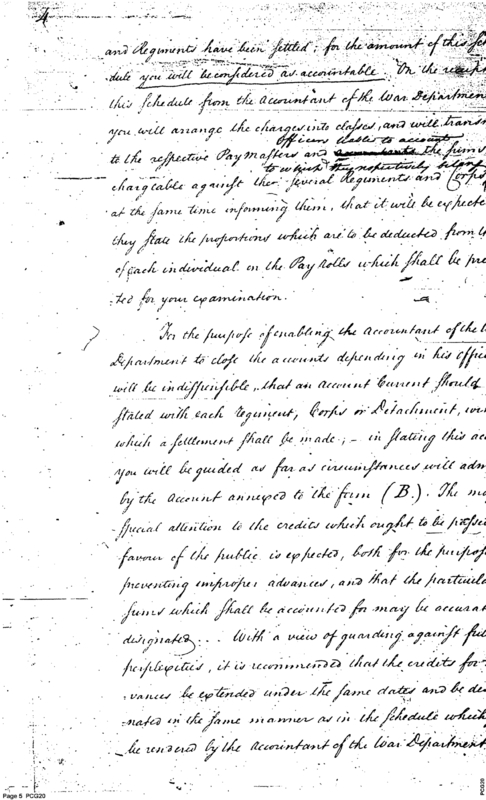 4
and Regiments have been settled; for the amount of this Sche
dule you will be considered as accountable. On the receipt
this Schedule from the Accountant of the War Departmen
you will arrange the charges into classes, and will transm
Officers liable to account
to the respective Paymasters and the sums
to which they respectively belong
chargeable against the several Regiments and Corps
at the same time informing them, that it will be expecte
they state the proportions which are to be deducted from
of each individual on the Pay Rolls which shall be pre
ted for your examination.
For the purpose of enabling the Accountant of the
Department to close the accounts depending in his offic
will be indispensible, that an account Current should
stated with each Regiment, Corps or Detachment, wi
which a settlement shall be made; - in stating this acc
you will be guided as far as circumstances will adm
by the Account annexed to the form (B.). The mo
special attention to the credits which ought to be passed
favour of the public is expected, both for the purpos
preventing improper advances, and that the particula
sums which shall be accounted for may be accurat
designated... With a view of guarding against fut
perplexities, it is recommended that the credits for
-vances be extended under the same dates and be de
nated in the same manner as in the Schedule which
be rendered by the Accountant of the War Department
Page 5 PCG20
PCG20